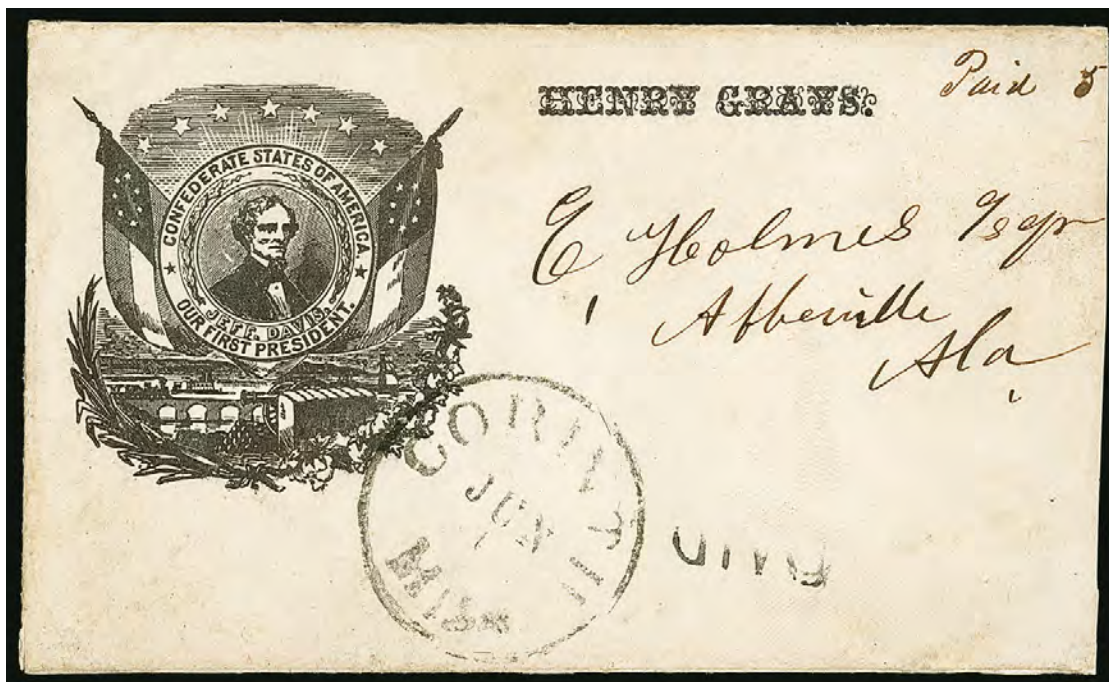 CONFEDERATE STATES OF AMERICA.
JEFF. DAVIS.
OUR FIRST PRESIDENT.
HENRY GRAYS.
Paid 5
E Holmes Esqr
Abbeville
Ala
CORINTH
JUN
1
MISS
PAID